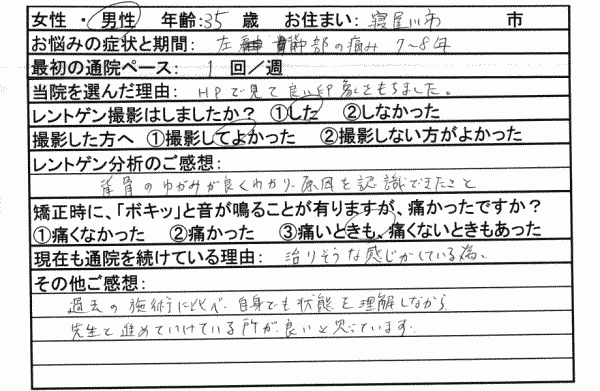 女性 ・ 男性 年齢:35 歳 お住まい: 寝屋川市 市
お悩みの症状と期間: 左 部の痛み 7~8年
最初の通院ペース: 1 回/週
当院を選んだ理由: HPで見て良い印象をもちました。
レントゲン撮影はしましたか? ①した ②しなかった
撮影した方へ ①撮影してよかった ②撮影しない方がよかった
レントゲン分析のご感想:
背骨のゆがみが良くわかり、原因を認識できたこと
矯正時に、「ボキッ」と音が鳴ることが有りますが、痛かったですか?
①痛くなかった ②痛かった ③痛いときも、痛くないときもあった
現在も通院を続けている理由: 治りそうな感じがしている為、
その他ご感想:
過去の施術に比べ、自身でも状態を理解しながら
先生と進めていけている所が、良いと思っています。